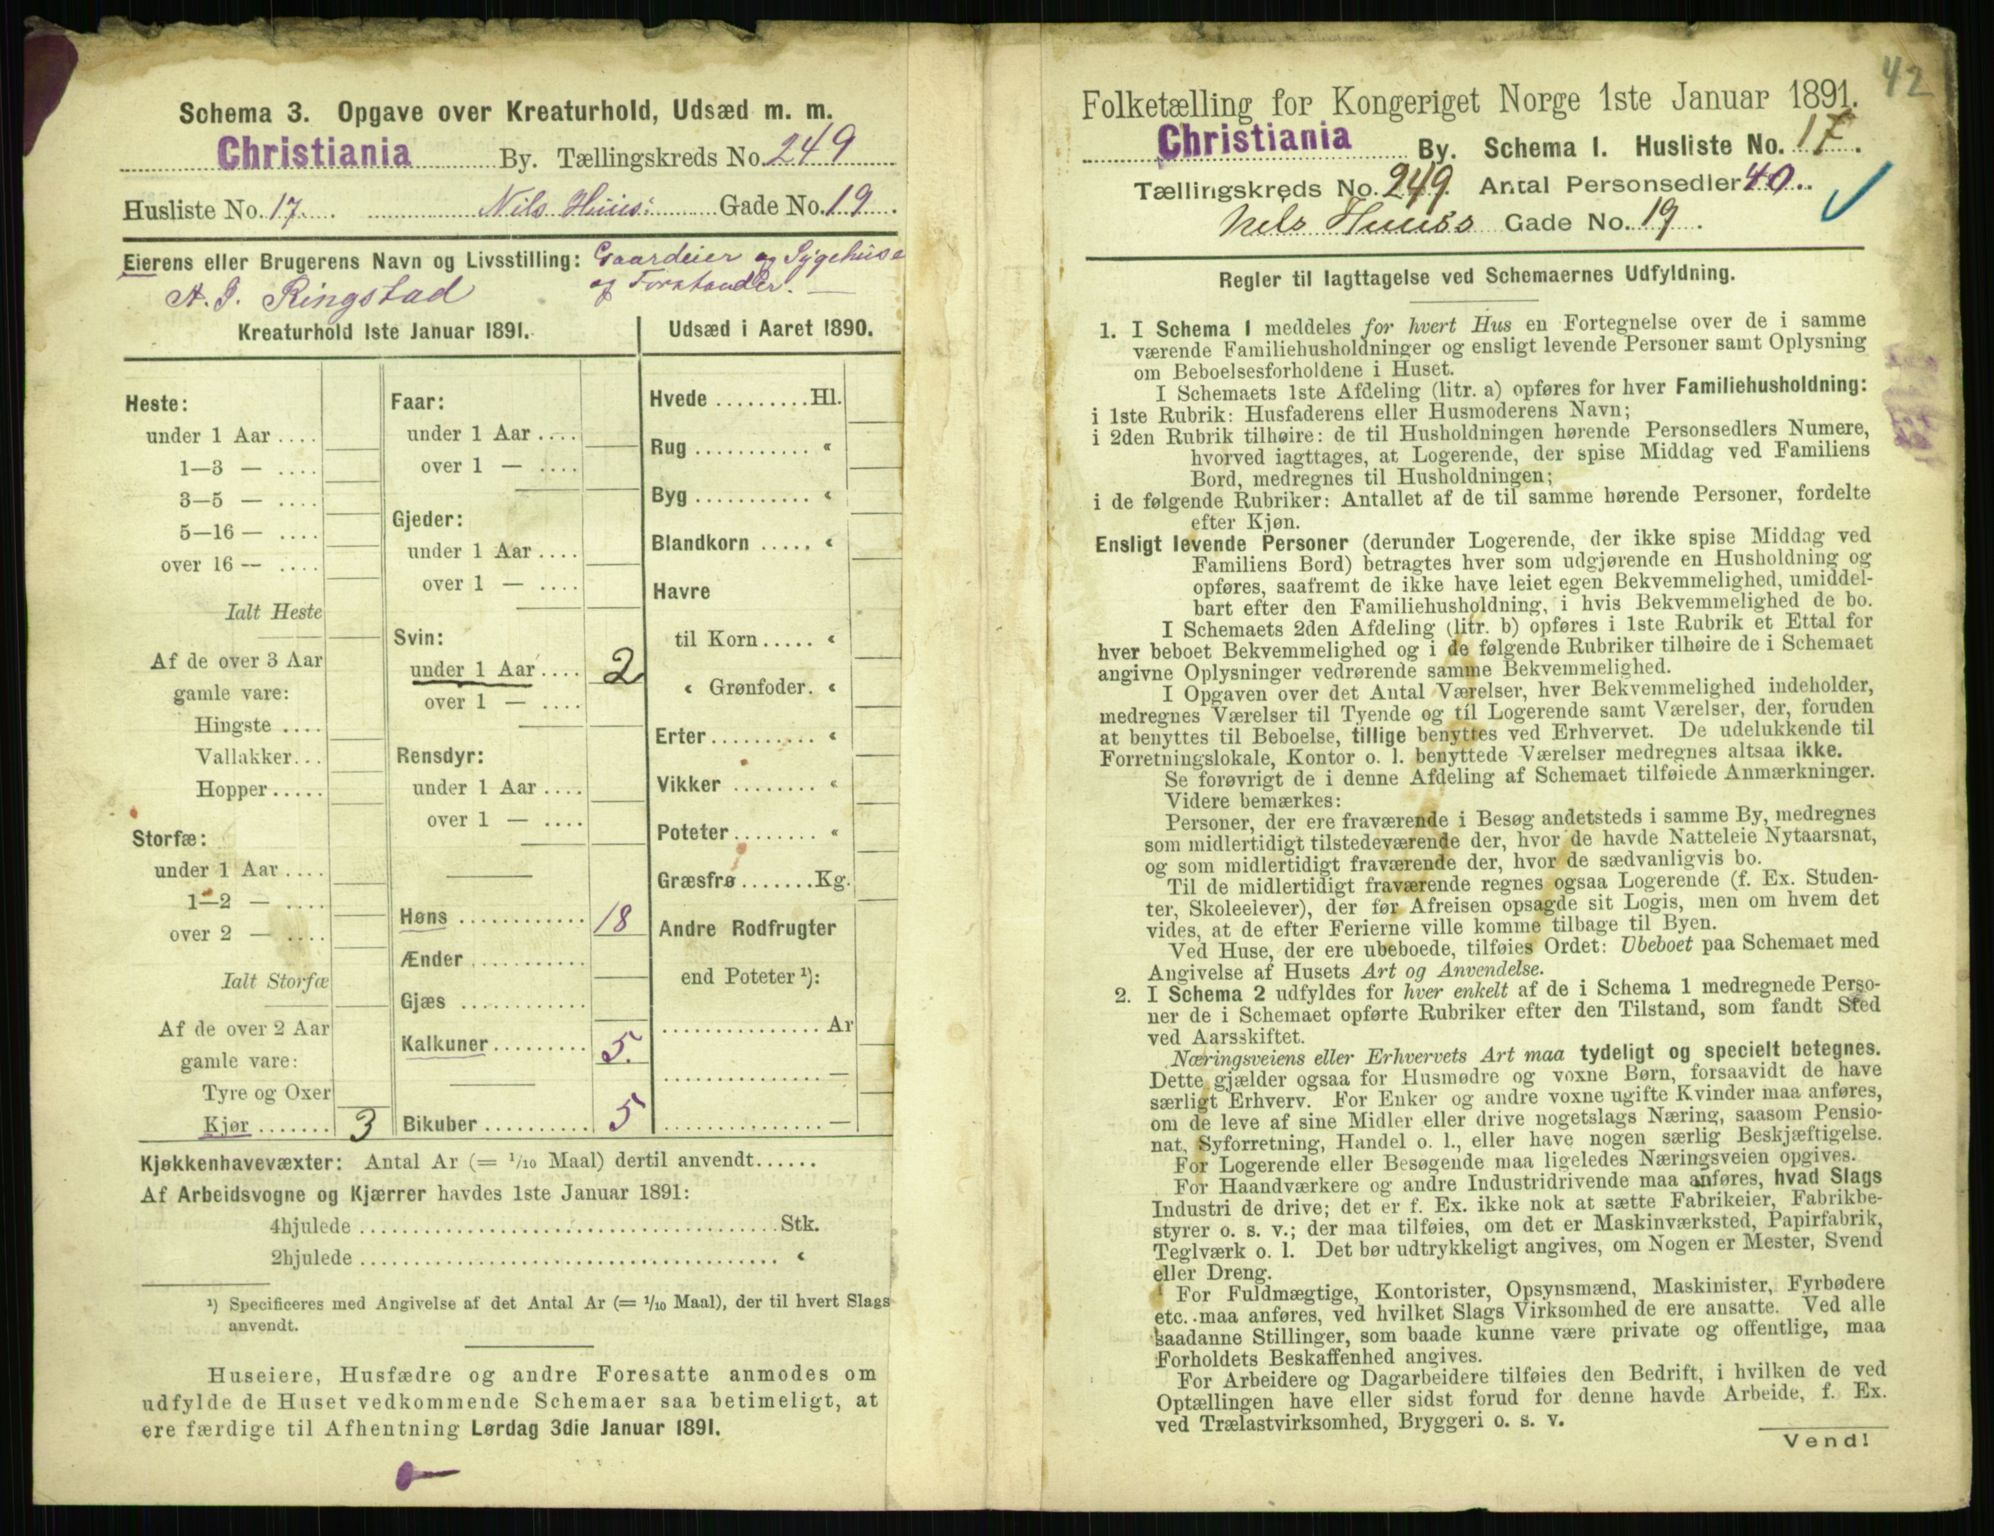 Schema 3. Opgave over Kreaturhold, Udsæd m. m.
Christiania By. Tællingskreds No. 249
Husliste No. 17. Nils Huus: Gade No. 19.
Eierens eller Brugerens Navn og Livsstilling: Gaardeier og Sygehuse
A. J. Ringstad og Forstander. —
Kreaturhold 1ste Januar 1891.
Heste:
under 1 Aar ....
1—3 — ....
3—5 — ....
5—16 — ....
over 16 — ....
Ialt Heste
Af de over 3 Aar
gamle vare:
Hingste ....
Vallakker...
Hopper.....
Storfæ:
under 1 Aar ....
1—2 — ....
over 2 — ....
Ialt Storfæ
Af de over 2 Aar
gamle vare:
Tyre og Oxer
Kjør ....... 3
Faar:
under 1 Aar ....
over 1 — ....
Gjeder:
under 1 Aar ....
over 1 — ....
Svin:
under 1 Aar .... 2
over 1 — ....
Rensdyr:
under 1 Aar ....
over 1 — ....
Høns ............ 18
Ænder ...........
Gjæs ............
Kalkuner ......... 5.
Bikuber .......... 5
Udsæd i Aaret 1890.
Hvede .........Hl.
Rug ........... «
Byg ........... «
Blandkorn ..... «
Havre
til Korn ..... «
« Grønfoder. «
Erter .......... «
Vikker ........ «
Poteter ........ «
Græsfrø .......Kg.
Andre Rodfrugter
end Poteter ¹):
............... Ar
............... —
............... —
Kjøkkenhavevæxter: Antal Ar (= 1/10 Maal) dertil anvendt......
Af Arbeidsvogne og Kjærrer havdes 1ste Januar 1891:
4hjulede ........................................ Stk.
2hjulede ........................................ «
¹) Specificeres med Angivelse af det Antal Ar (= 1/10 Maal), der til hvert Slags
anvendt.
Huseiere, Husfædre og andre Foresatte anmodes om
udfylde de Huset vedkommende Schemaer saa betimeligt, at
ere færdige til Afhentning Lørdag 3die Januar 1891.
42
Folketælling for Kongeriget Norge 1ste Januar 1891.
Christiania By. Schema I. Husliste No. 17.
Tællingskreds No. 249 Antal Personsedler 40.
Nels Huuss Gade No. 19.
Regler til Iagttagelse ved Schemaernes Udfyldning.
1. I Schema 1 meddeles for hvert Hus en Fortegnelse over de i samme
værende Familiehusholdninger og ensligt levende Personer samt Oplysning
om Beboelsesforholdene i Huset.
I Schemaets 1ste Afdeling (litr. a) opføres for hver Familiehusholdning:
i 1ste Rubrik: Husfaderens eller Husmoderens Navn;
i 2den Rubrik tilhøire: de til Husholdningen hørende Personsedlers Numere,
hvorved iagttages, at Logerende, der spise Middag ved Familiens
Bord, medregnes til Husholdningen;
i de følgende Rubriker: Antallet af de til samme hørende Personer, fordelte
efter Kjøn.
Ensligt levende Personer (derunder Logerende, der ikke spise Middag ved
Familiens Bord) betragtes hver som udgjørende en Husholdning og
opføres, saafremt de ikke have leiet egen Bekvemmelighed, umiddel-
bart efter den Familiehusholdning, i hvis Bekvemmelighed de bo.
I Schemaets 2den Afdeling (litr. b) opføres i 1ste Rubrik et Ettal for
hver beboet Bekvemmelighed og i de følgende Rubriker tilhøire de i Schemaet
angivne Oplysninger vedrørende samme Bekvemmelighed.
I Opgaven over det Antal Værelser, hver Bekvemmelighed indeholder,
medregnes Værelser til Tyende og til Logerende samt Værelser, der, foruden
at benyttes til Beboelse, tillige benyttes ved Erhvervet. De udelukkende til
Forretningslokale, Kontor o. l. benyttede Værelser medregnes altsaa ikke.
Se forøvrigt de i denne Afdeling af Schemaet tilføiede Anmærkninger.
Videre bemærkes:
Personer, der ere fraværende i Besøg andetsteds i samme By, medregnes
som midlertidigt tilstedeværende der, hvor de havde Natteleie Nytaarsnat,
og som midlertidigt fraværende der, hvor de sædvanligvis bo.
Til de midlertidigt fraværende regnes ogsaa Logerende (f. Ex. Studen-
ter, Skoleelever), der før Afreisen opsagde sit Logis, men om hvem det
vides, at de efter Ferierne ville komme tilbage til Byen.
Ved Huse, der ere ubeboede, tilføies Ordet: Ubeboet paa Schemaet med
Angivelse af Husets Art og Anvendelse.
2. I Schema 2 udfyldes for hver enkelt af de i Schema 1 medregnede Perso-
ner de i Schemaet opførte Rubriker efter den Tilstand, som fandt Sted
ved Aarsskiftet.
Næringsveiens eller Erhvervets Art maa tydeligt og specielt betegnes.
Dette gjælder ogsaa for Husmødre og voxne Børn, forsaavidt de have
særligt Erhverv. For Enker og andre voxne ugifte Kvinder maa anføres,
om de leve af sine Midler eller drive nogetslags Næring, saasom Pensio-
nat, Syforretning, Handel o. l., eller have nogen særlig Beskjæftigelse.
For Logerende eller Besøgende maa ligeledes Næringsveien opgives.
For Haandværkere og andre Industridrivende maa anføres, hvad Slags
Industri de drive; det er f. Ex. ikke nok at sætte Fabrikeier, Fabrikbe-
styrer o. s. v.; der maa tilføies, om det er Maskinværksted, Papirfabrik,
Teglværk o. l. Det bør udtrykkeligt angives, om Nogen er Mester, Svend
eller Dreng.
For Fuldmægtige, Kontorister, Opsynsmænd, Maskinister, Fyrbødere
etc. maa anføres, ved hvilket Slags Virksomhed de ere ansatte. Ved alle
saadanne Stillinger, som baade kunne være private og offentlige, maa
Forholdets Beskaffenhed angives.
For Arbeidere og Dagarbeidere tilføies den Bedrift, i hvilken de ved
Optællingen have eller sidst forud for denne havde Arbeide, f. Ex.
ved Trælastvirksomhed, Bryggeri o. s. v.
Vend!